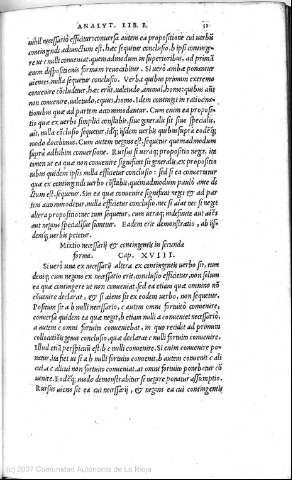 ANALYT. LIB. I.
nihil necessariò efficitur: conuersa autem ea propositione cui uerbũ
contingendi adiunctum est, hæc sequitur conclusio, b ipsi contingere
ut c nulli conueniat: quemadmodum in superioribus, ad primã
eam dispositionis formam reuocabitur. Si uerò ambæ ponantur
aientes, nulla sequetur conclusio. Verba quibus primum extremo
conuenire
non conuenire, ualetudo, equus, homo. Idem contingit in rationationibus
quæ ad partem accommodantur. Cum enim ea propositio
quæ ex uerbo simplici constabit, siue generalis sit siue specialis,
ait, nulla eiusdem sequetur, idq; ijsdem uerbis quibus suprà eodẽq;
modo docebimus. Cum autem negans est, sequetur quemadmodum
suprà adhibita conuersione. Rursus si utraq; propositio neget,
autem
ea quæ non conuenire significat sit generalis, ex propositionibus
quidem ipsis nulla efficietur conclusio: sed si ea conuertatur
quæ ex contingendi uerbo cõstabit, quemadmodum paulò ante dictum
est, sequetur. Sin ea quæ non conuenire significat neget &amp; ad partem
accommodetur, nulla efficietur conclusio, nec si aiat nec si neget
altera propositio: nec cum sequetur, cum utraq; indefinitè aut aiẽs
aut negans specialisue sumatur. Eadem erit demonstratio, ab ijsdemq;
uerbis petetur.
Mixtio necessarij &amp; contingentis in secunda
forma. Cap. XVIII.
Si uerò una ex necessarij altera ex contingentis uerbo sit, tum
deniq; cum negans ex necessario erit, conclusio efficietur, non solum
ea quæ contingere ut non conueniat, sed ea etiam quæ omninò nõ
conuenire declarat, &amp; si aiens sit ex eodem uerbo, non sequetur.
Positum sit a b nulli necessariò, c autem omni fortuitò conuenire,
conuersa quidem ea quæ negat, b etiam nulli a conueniet necessariò,
a autem c omni fortuitò conueniebat, in quo reciditur ad primam
collectiõis quæ declarabat a c nulli fortuitò conuenire.
Illud etiã perspicuũ est, b c nulli conuenire. Si enim conuenire ponatur,
ita fiet ut si a b nulli fortuitò conuenit, b autem conuenit c alicui,
a c alicui non fortuitò conueniat, at omni fortuitò ponebatur cõuenire.
Eodẽq; modo demonstrabitur si negare ponatur assumptio.
Rursus aiens sit ea cui necessarij, &amp; negans ea cui contingentis
(c) 2007 Comunidad Autónoma de La Rioja